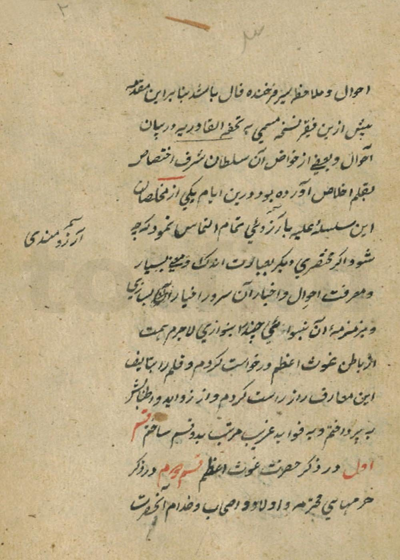 احوال و ملاحظه سیر فرخنده فال باشد بنابر این مقدمه
پیش ازین فقیر نسخه مسمی به تحفه القادریه در بیان
احوال و بعضی از خواص آن سلطان شرف اختصاص
بقلم اخلاص آورده بود درین ایام یکی از مخلصان
این سلسله علیه بآرزوی تمام التماس نمود که چه
شود اگر مختصری دیگر بعبارت اندک و معنی بسیار
و معرفت احوال و اخبار آن سرور اخیار
و بزمزمه آن لاجرم همت
از باطن غوث اعظم درخواست کردم و قلم را بتالیف
این معارف راز راست کردم و از زواید و اطناب
نه پرداختم و به فواید غریب مرتب بدو قسم ساختم قسم
اول در ذکر حضرت غوث اعظم قسم دویم در ذکر
حرمهای محترمه و اولاد و اصحاب و خدام آنحضرت
آرزومندی